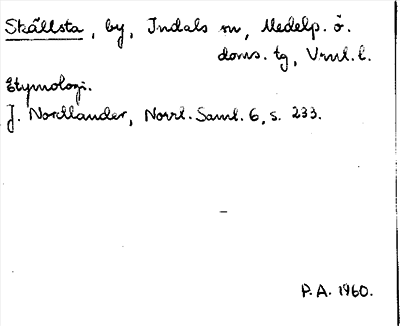 Skällsta, by, Indals sn, Medelp. ö.
doms. tg, Vrnl. l.
Etymologi.
J. Nordlander, Norrl. Saml. 6, s. 233.
P.A. 1960.